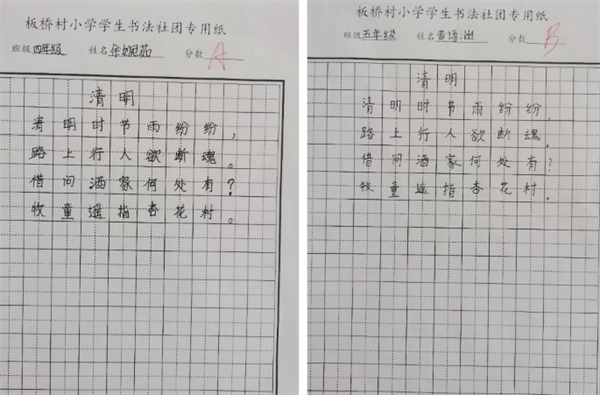 板桥村小学学生书法社团专用纸
班级 四年级 姓名 余婉茹 分数 A
清明
清明时节雨纷纷，
路上行人欲断魂。
借问酒家何处有？
牧童遥指杏花村。
板桥村小学学生书法社团专用纸
班级 五年级 姓名 黄 分数 B
清明
清明时节雨纷纷，
路上行人欲断魂。
借问酒家何处有？
牧童遥指杏花村。